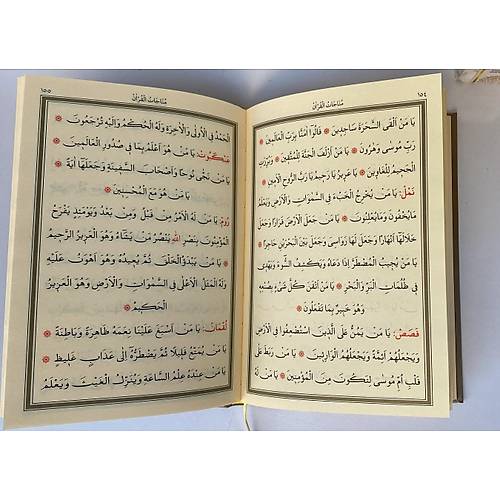 ١٥٤ مُنَاجَاتُ الْقُرْاٰنِ
يَا مَنْ اَلْقَى السَّحَرَةَ سَاجِدِينَ ۞ قَالُوا اٰمَنَّا بِرَبِّ الْعَالَمِينَ ۞
رَبِّ مُوسٰى وَهٰرُونَ ۞ يَا مَنْ اَزْلَفَ الْجَنَّةَ لِلْمُتَّقِينَ ۞ وَبَرَّزَتِ
الْجَحِيمَ لِلْغَاوِينَ ۞ يَا عَزِيزُ يَا رَحِيمُ يَا رَبَّ الرُّوحِ الْاَمِينِ ۞
نَمْلُ: يَا مَنْ يُخْرِجُ الْخَبْءَ فِي السَّمٰوَاتِ وَالْاَرْضِ وَيَعْلَمُ
مَا يُخْفُونَ وَمَا يُعْلِنُونَ ۞ يَا مَنْ جَعَلَ الْاَرْضَ قَرَارًا وَجَعَلَ
خِلَالَهَا اَنْهَارًا وَجَعَلَ لَهَا رَوَاسِيَ وَجَعَلَ بَيْنَ الْبَحْرَيْنِ حَاجِزًا ۞
يَا مَنْ يُجِيبُ الْمُضْطَرَّ اِذَا دَعَاهُ وَيَكْشِفُ السُّوءَ وَيَهْدِي
فِي ظُلُمَاتِ الْبَرِّ وَالْبَحْرِ ۞ يَا مَنْ اَتْقَنَ كُلَّ شَيْءٍ صُنْعُهُ
وَهُوَ خَبِيرٌ بِمَا تَفْعَلُونَ ۞
قَصَصْ: يَا مَنْ يَمُنُّ عَلَى الَّذِينَ اسْتُضْعِفُوا فِي الْاَرْضِ
وَيَجْعَلُهُمْ اَئِمَّةً وَيَجْعَلُهُمُ الْوَارِثِينَ ۞ يَا مَنْ رَبَطَ عَلٰى
قَلْبِ اُمِّ مُوسٰى لِتَكُونَ مِنَ الْمُؤْمِنِينَ ۞ يَا مَنْ لَهُ
١٥٥ مُنَاجَاتُ الْقُرْاٰنِ
الْحَمْدُ فِي الْاُولٰى وَالْاٰخِرَةِ وَلَهُ الْحُكْمُ وَاِلَيْهِ تُرْجَعُونَ ۞
عَنْكَبُوتْ: يَا مَنْ هُوَ اَعْلَمُ بِمَا فِي صُدُورِ الْعَالَمِينَ ۞
يَا مَنْ نَجّٰى نُوحًا وَاَصْحَابَ السَّفِينَةِ وَجَعَلَهَا اٰيَةً ۞
يَا مَنْ هُوَ مَعَ الْمُحْسِنِينَ ۞
رُومْ: يَا مَنْ لَهُ الْاَمْرُ مِنْ قَبْلُ وَمِنْ بَعْدُ وَيَوْمَئِذٍ يَفْرَحُ
الْمُؤْمِنُونَ بِنَصْرِ اللّٰهِ يَنْصُرُ مَنْ يَشَاءُ وَهُوَ الْعَزِيزُ الرَّحِيمُ
يَا مَنْ يَبْدَؤُا الْخَلْقَ ثُمَّ يُعِيدُهُ وَهُوَ اَهْوَنُ عَلَيْهِ
وَلَهُ الْمَثَلُ الْاَعْلٰى فِي السَّمٰوَاتِ وَالْاَرْضِ وَهُوَ الْعَزِيزُ
الْحَكِيمُ ۞
لُقْمَانْ: يَا مَنْ اَسْبَغَ عَلَيْنَا نِعَمَهُ ظَاهِرَةً وَبَاطِنَةً ۞
يَا مَنْ يُمَتِّعُ قَلِيلًا ثُمَّ يَضْطَرُّهُ اِلٰى عَذَابٍ غَلِيظٍ ۞
يَا مَنْ عِنْدَهُ عِلْمُ السَّاعَةِ وَيُنَزِّلُ الْغَيْثَ وَيَعْلَمُ